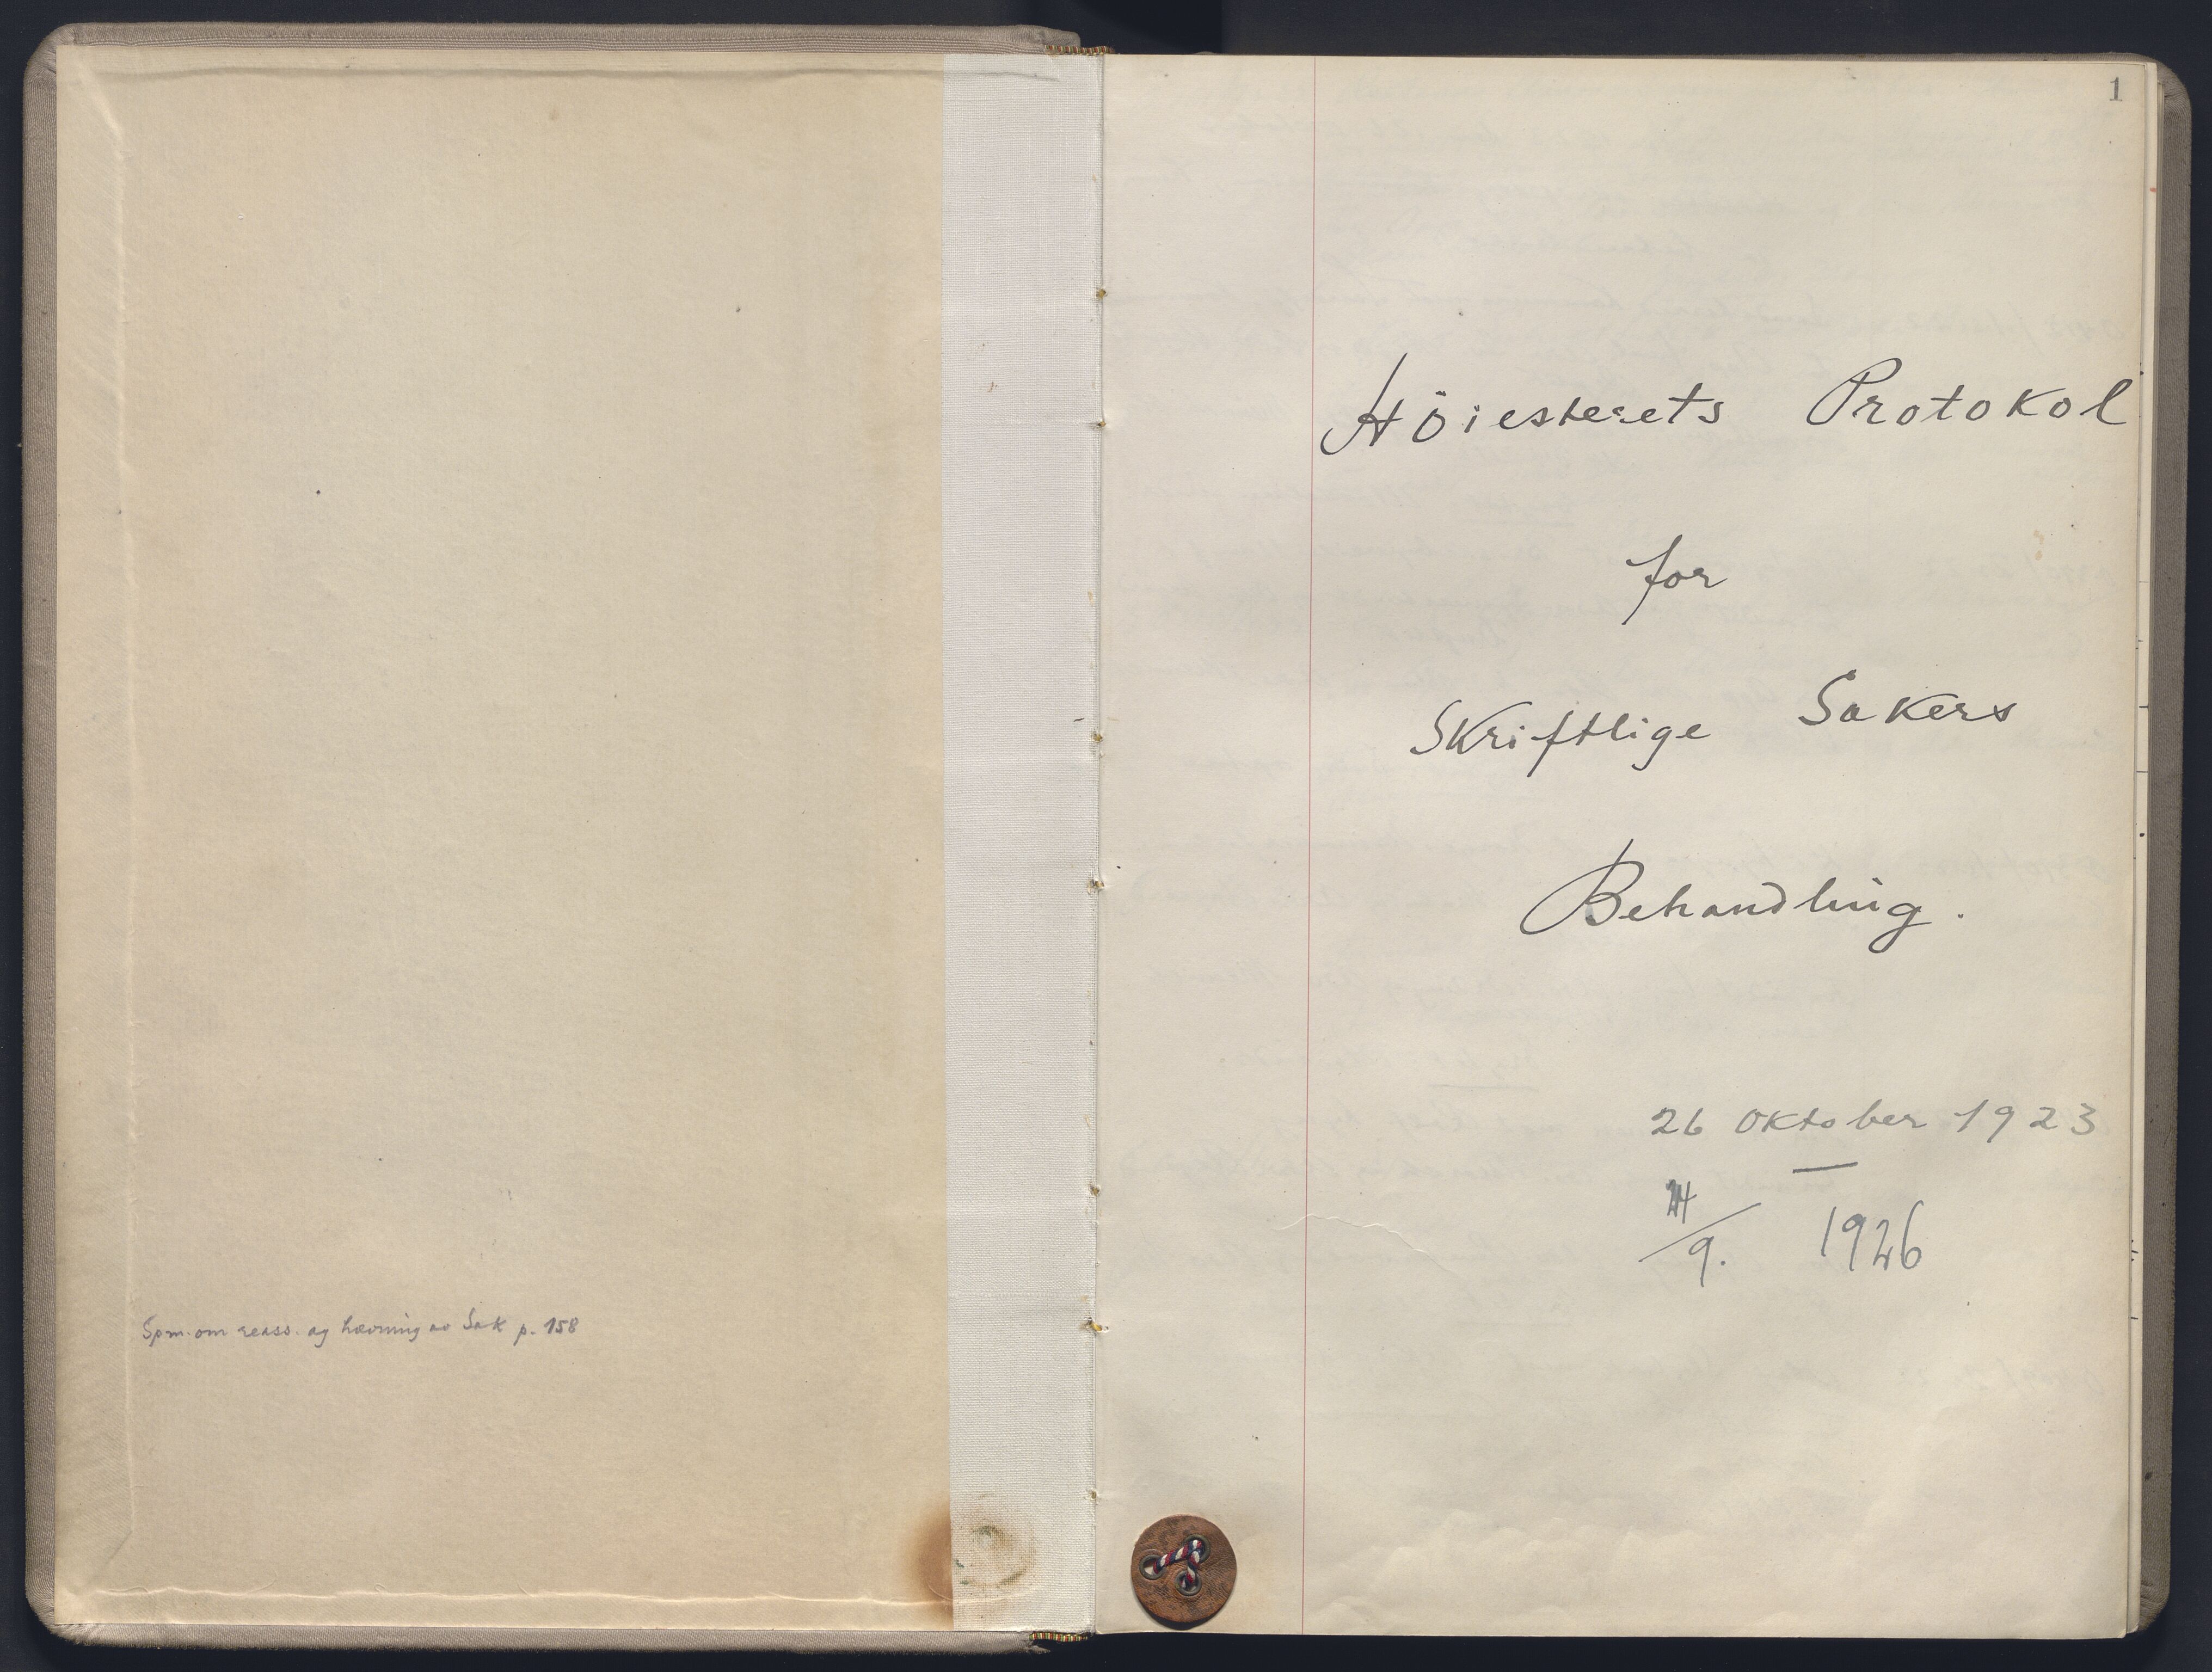 Spm. om reass. og hævning av Sak p. 158
1
Höiesterets Protokol
for
Skriftlige Sakers
Behandling.
26 Oktober 1923
—
24/9. 1926